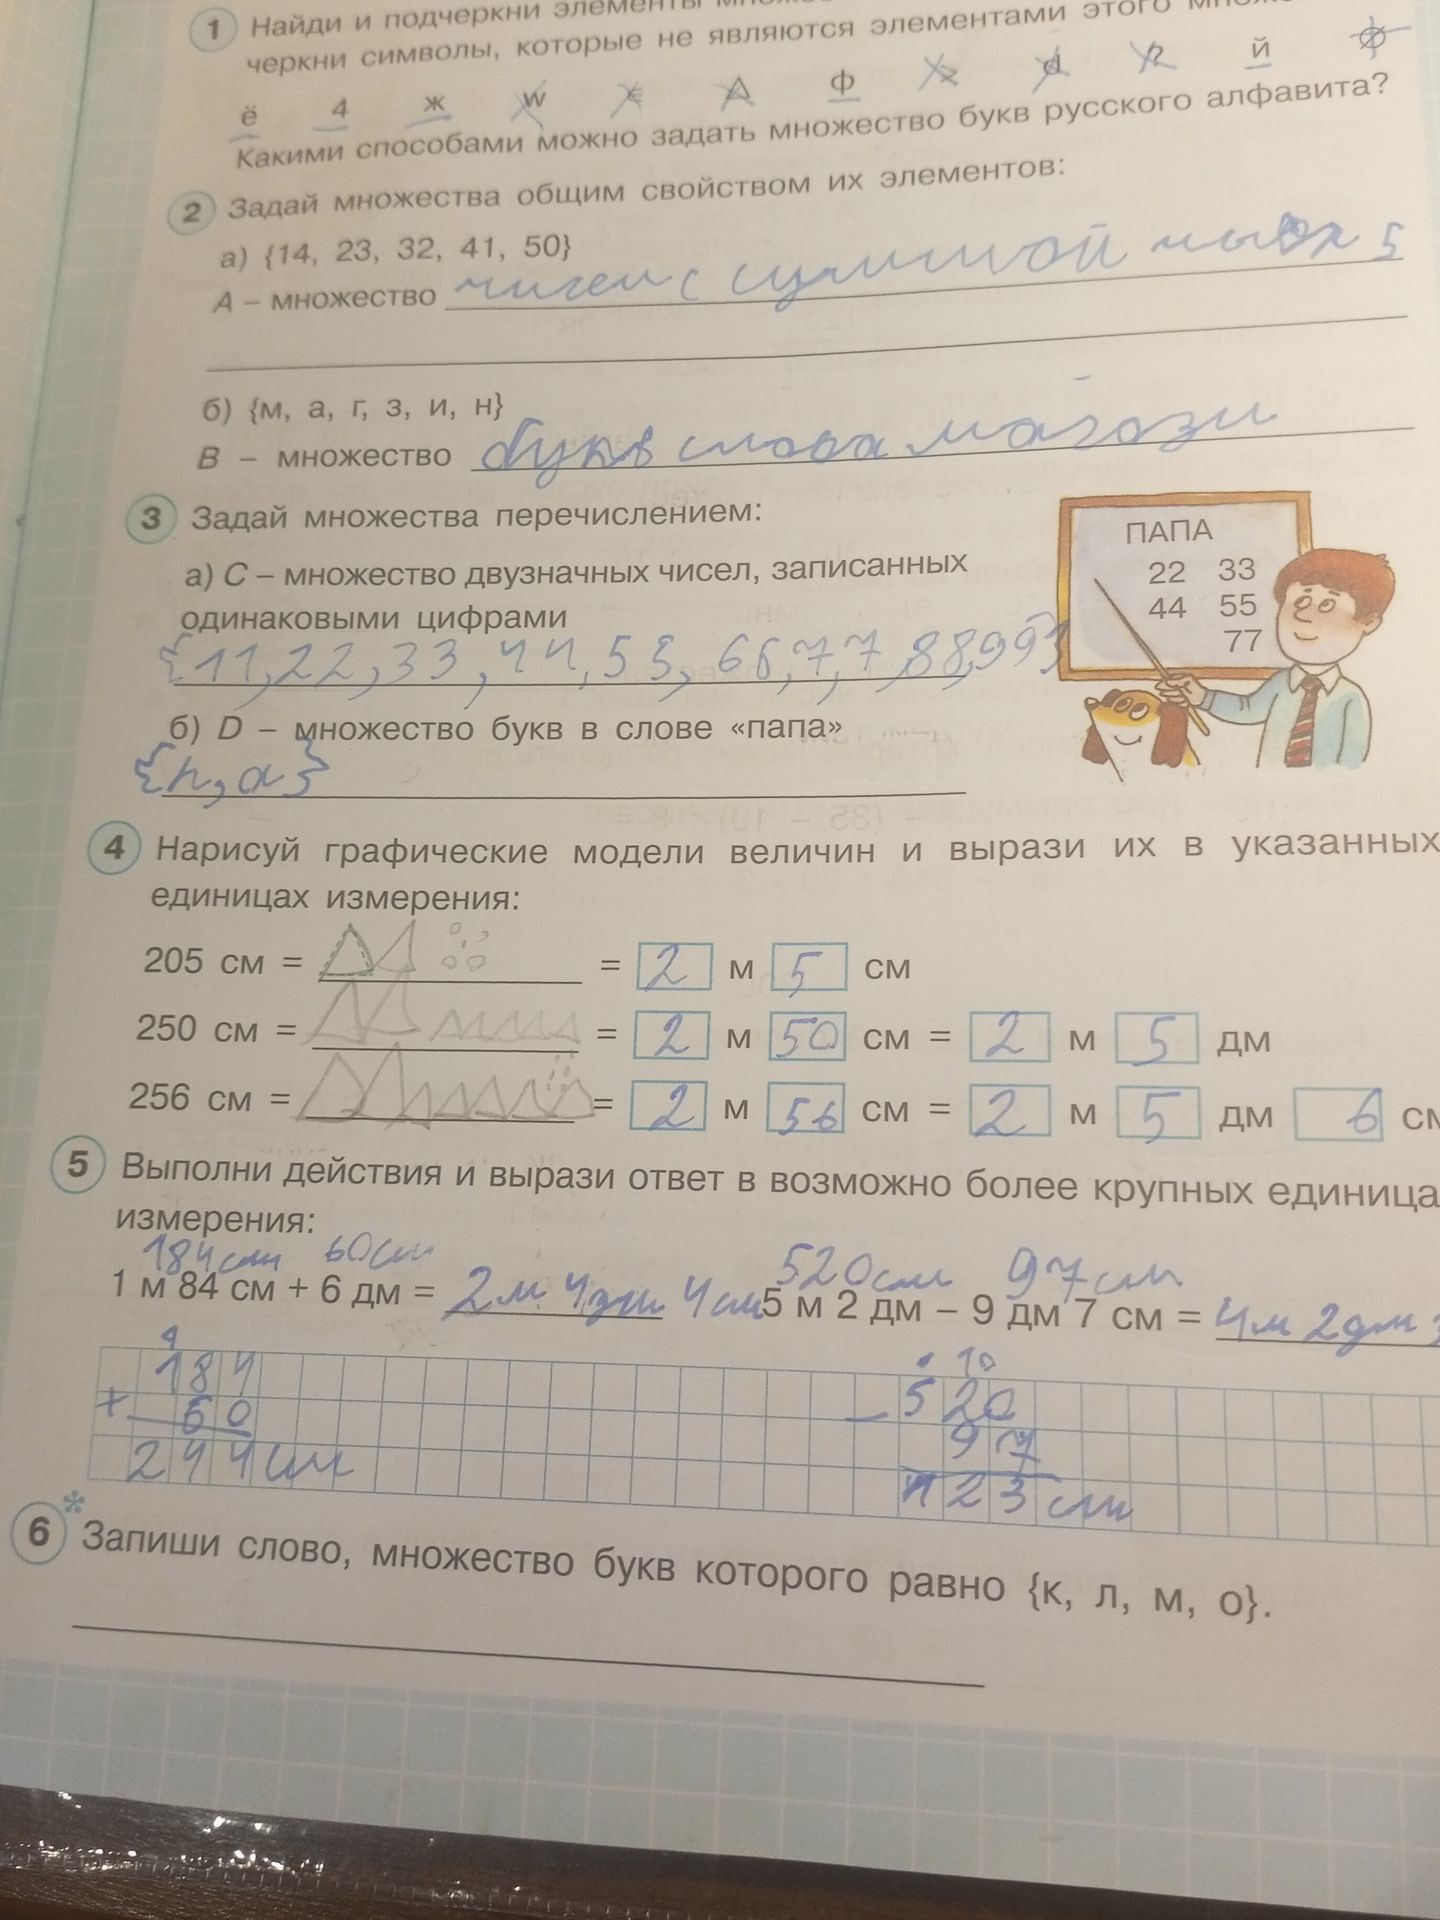 1 Найди и подчеркни элементы
черкни символы, которые не являются элементами этого
ё 4 ж w є A ф z d ? й
Какими способами можно задать множество букв русского алфавита?
2 Задай множества общим свойством их элементов:
а) {14, 23, 32, 41, 50}
A – множество чисел с суммой 5
б) {м, а, г, з, и, н}
B – множество букв слова магази
3 Задай множества перечислением:
а) C – множество двузначных чисел, записанных
одинаковыми цифрами
{11,22,33,44,55,66,77,88,99}
б) D – множество букв в слове «папа»
{п,а}
ПАПА
22 33
44 55
77
4 Нарисуй графические модели величин и вырази их в указанных
единицах измерения:
205 см = = 2 м 5 см
250 см = = 2 м 50 см = 2 м 5 дм
256 см = = 2 м 56 см = 2 м 5 дм 6 см
5 Выполни действия и вырази ответ в возможно более крупных единица
измерения:
184см 60см 520см 97см
1 м 84 см + 6 дм = 2м 4дм 4см 5 м 2 дм – 9 дм 7 см = 4м 2дм 3
184 + 60
244см
10
– 520
97
423см
6* Запиши слово, множество букв которого равно {к, л, м, о}.